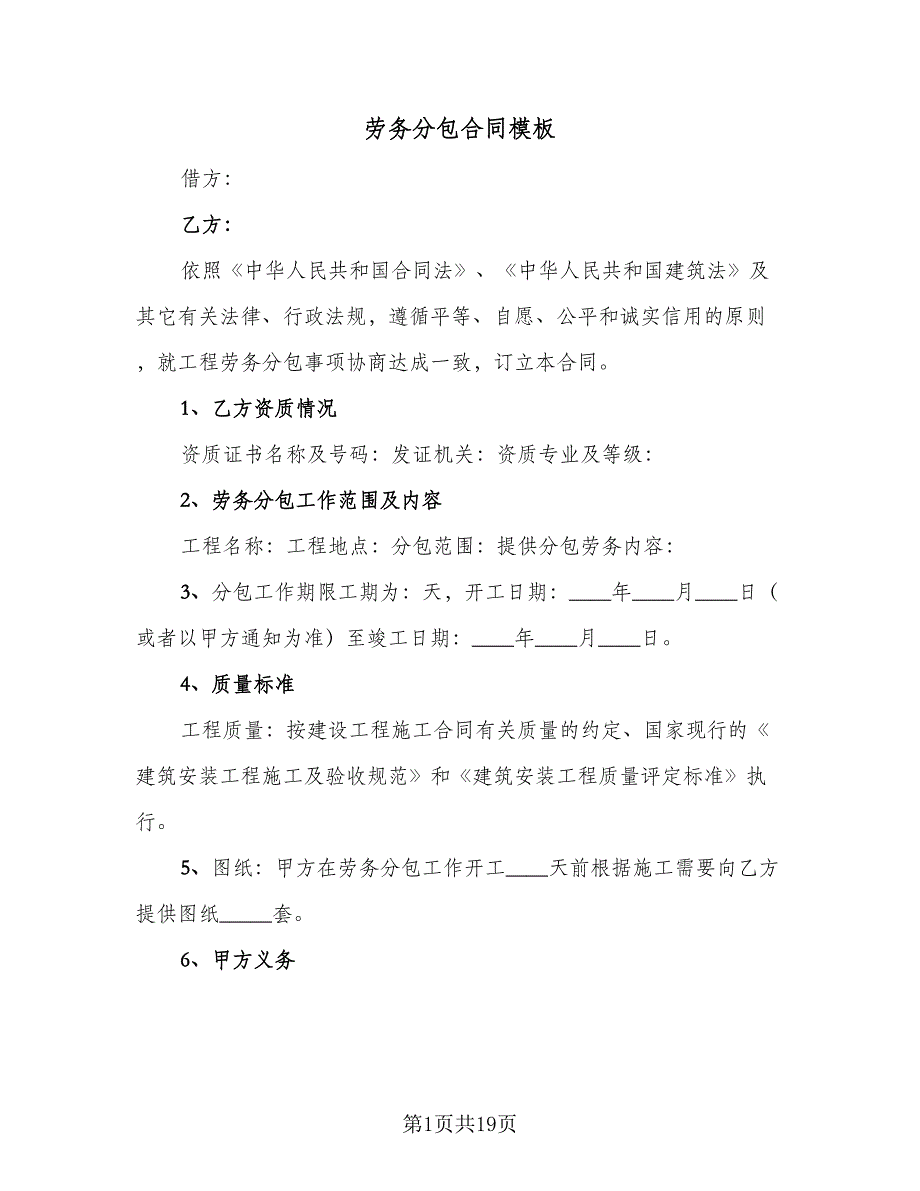 劳务分包合同模板
借方：
乙方：
依照《中华人民共和国合同法》、《中华人民共和国建筑法》及
其它有关法律、行政法规，遵循平等、自愿、公平和诚实信用的原则
，就工程劳务分包事项协商达成一致，订立本合同。
1、乙方资质情况
资质证书名称及号码：发证机关：资质专业及等级：
2、劳务分包工作范围及内容
工程名称：工程地点：分包范围：提供分包劳务内容：
3、分包工作期限工期为：天，开工日期：____年____月____日（
或者以甲方通知为准）至竣工日期：____年____月____日。
4、质量标准
工程质量：按建设工程施工合同有关质量的约定、国家现行的《
建筑安装工程施工及验收规范》和《建筑安装工程质量评定标准》执
行。
5、图纸：甲方在劳务分包工作开工____天前根据施工需要向乙方
提供图纸_____套。
6、甲方义务
第1页共19页